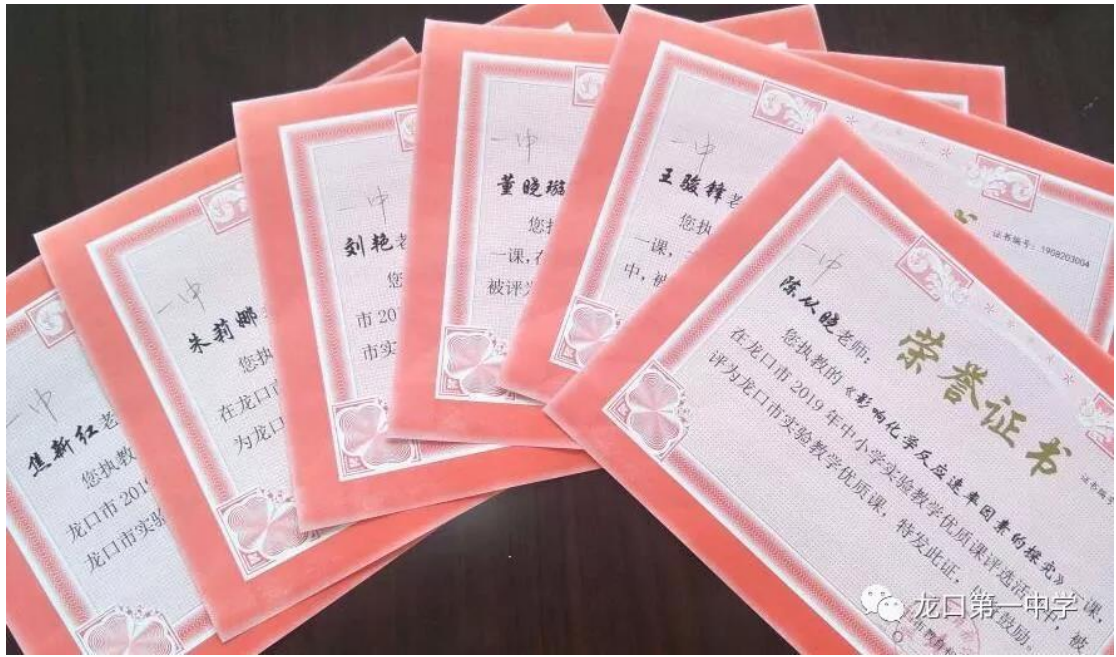 一中
焦新红老
您执教
龙口市 201
龙口市实验
一中
朱莉娜
您执
在龙口市
为龙口
一中
刘艳老
您
市 20
市实
一中
董晓璇
您执
一课,在
被评为
一中
王骏锋老
您执
一课,
中,被
证书编号:1908203004
一中
荣誉证书
证书编
陈从晓老师:
您执教的《影响化学反应速率因素的探究》一课,
在龙口市 2019 年中小学实验教学优质课评选活动中,被
评为龙口市实验教学优质课,特发此证,以资鼓励。
龙口第一中学